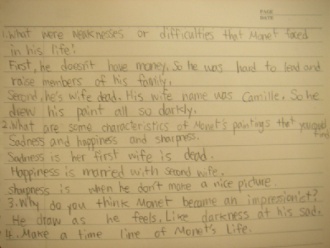 1. What were weaknesses or difficulties that Monet faced
in his life?
First, he doesn't have money. So he was hard to lend and
raise members of his family.
Second, he's wife dead. His wife name was Camille. So he
drew his paint all so darkly.
2. What are some characteristics of Monet's paintings that you
Sadness and happiness and sharpness.
Sadness is her first wife is dead.
Happiness is married with second wife.
sharpness is when he don't make a nice picture.
3. Why do you think Monet became an impressionist?
He draw as he feels. Like darkness at his sad.
4. Make a time line of Monet's life.